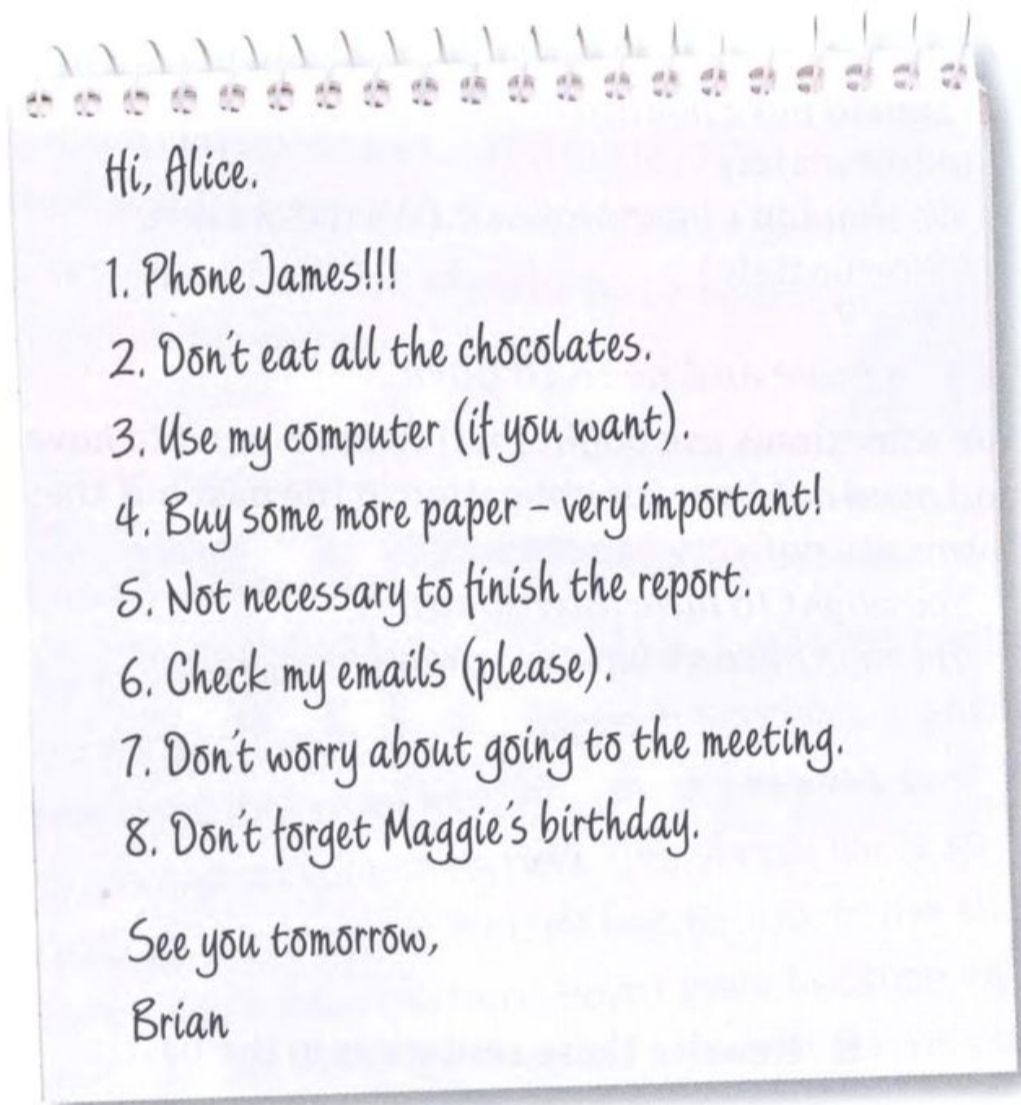 Hi, Alice.
1. Phone James!!!
2. Don't eat all the chocolates.
3. Use my computer (if you want).
4. Buy some more paper – very important!
5. Not necessary to finish the report.
6. Check my emails (please).
7. Don't worry about going to the meeting.
8. Don't forget Maggie's birthday.
See you tomorrow,
Brian